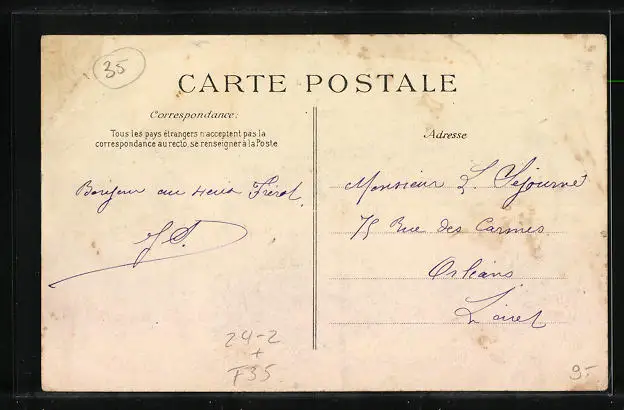 35
CARTE POSTALE
Correspondance:
Tous les pays étrangers n'acceptent pas la
correspondance au recto, se renseigner à la Poste
Bonjour au
J S.
Adresse
Monsieur L. Séjourné
75 Rue des Carmes
Orléans
Loiret
24-2
+
F35
9-